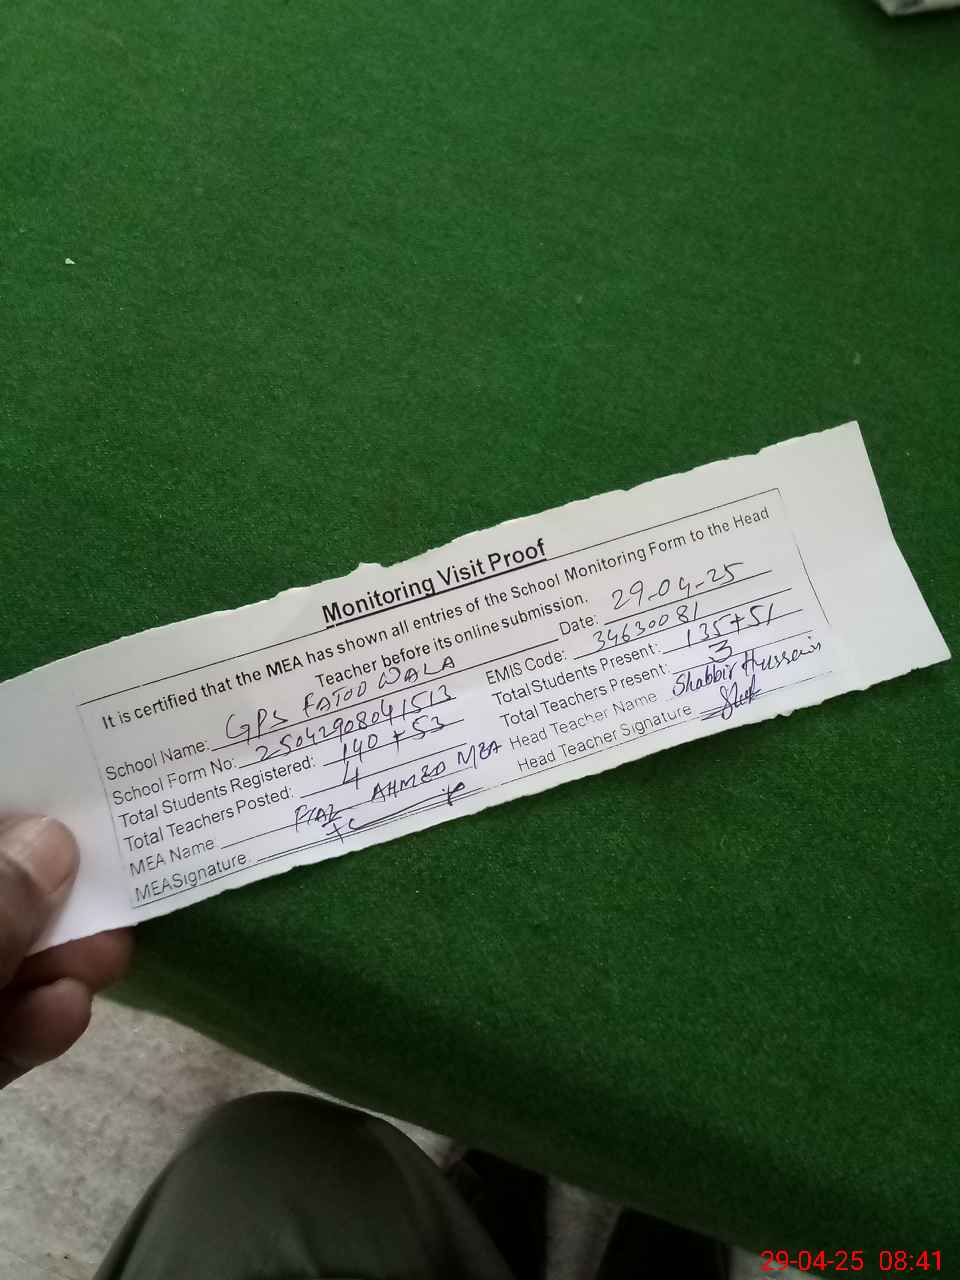 Monitoring Visit Proof
It is certified that the MEA has shown all entries of the School Monitoring Form to the Head
Teacher before its online submission.
Date: 29-04-25
School Name: GPS FATOO WALA
EMIS Code: 34630081
School Form No: 25042908041513
Total Students Present: 135+51
Total Students Registered: 140 + 53
Total Teachers Present: 3
Total Teachers Posted: 4
Head Teacher Name Shabbir Hussain
MEA Name: AHMED MEA
Head Teacher Signature
MEASignature
29-04-25 08:41